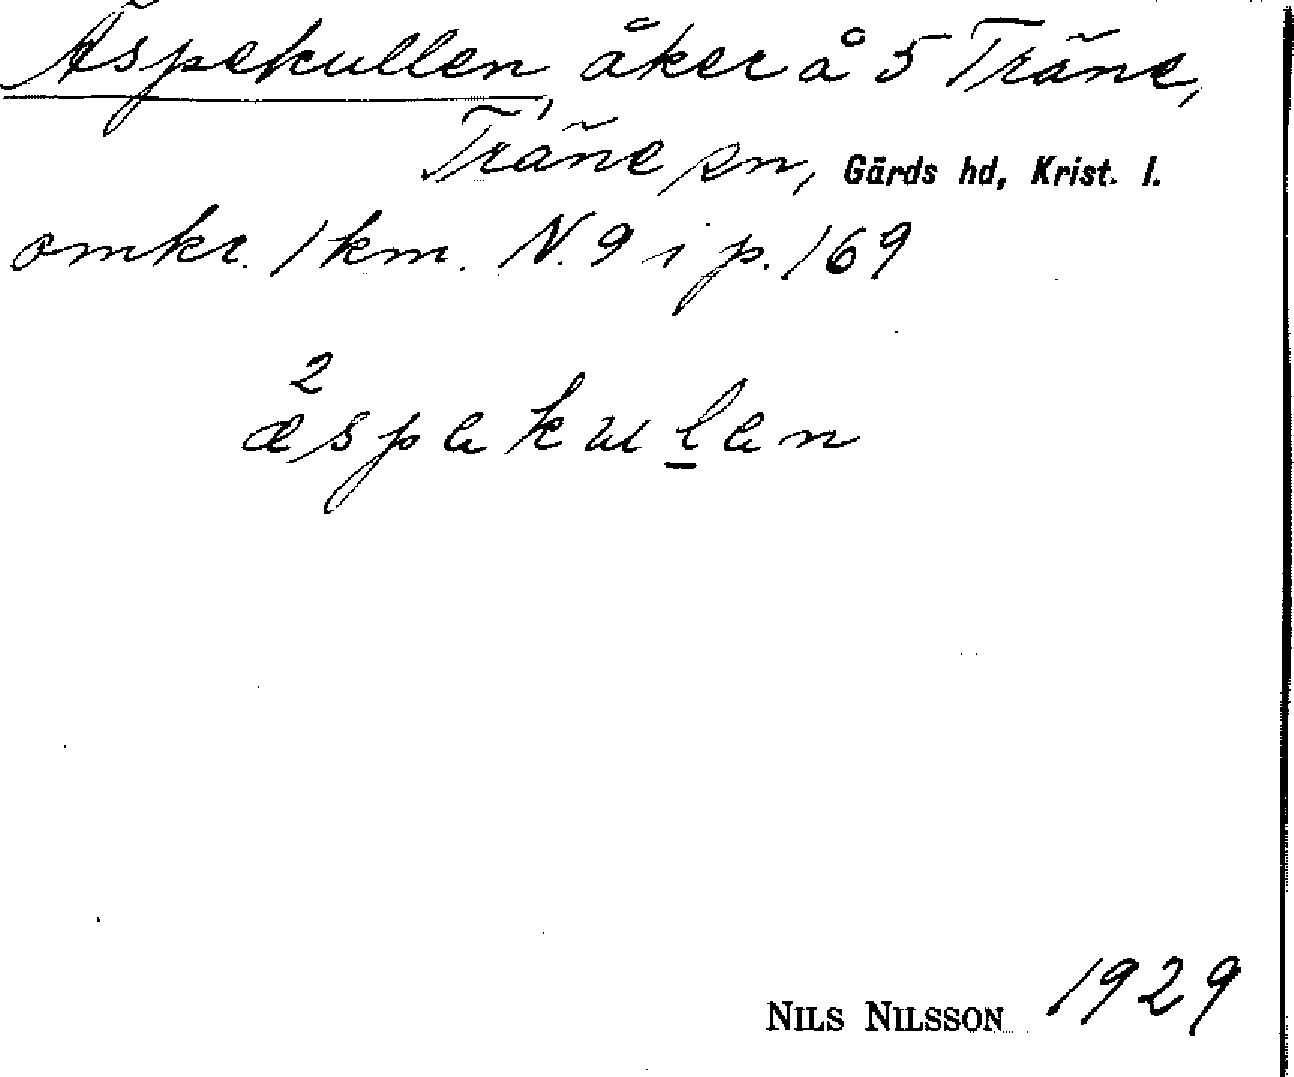 Äspekullen, åker å 5 Träne,
Träne sn, Gärds hd, Krist. l.
omkr. 1 km. N. 9 i p. 169
2
æspekulen
NILS NILSSON 1929